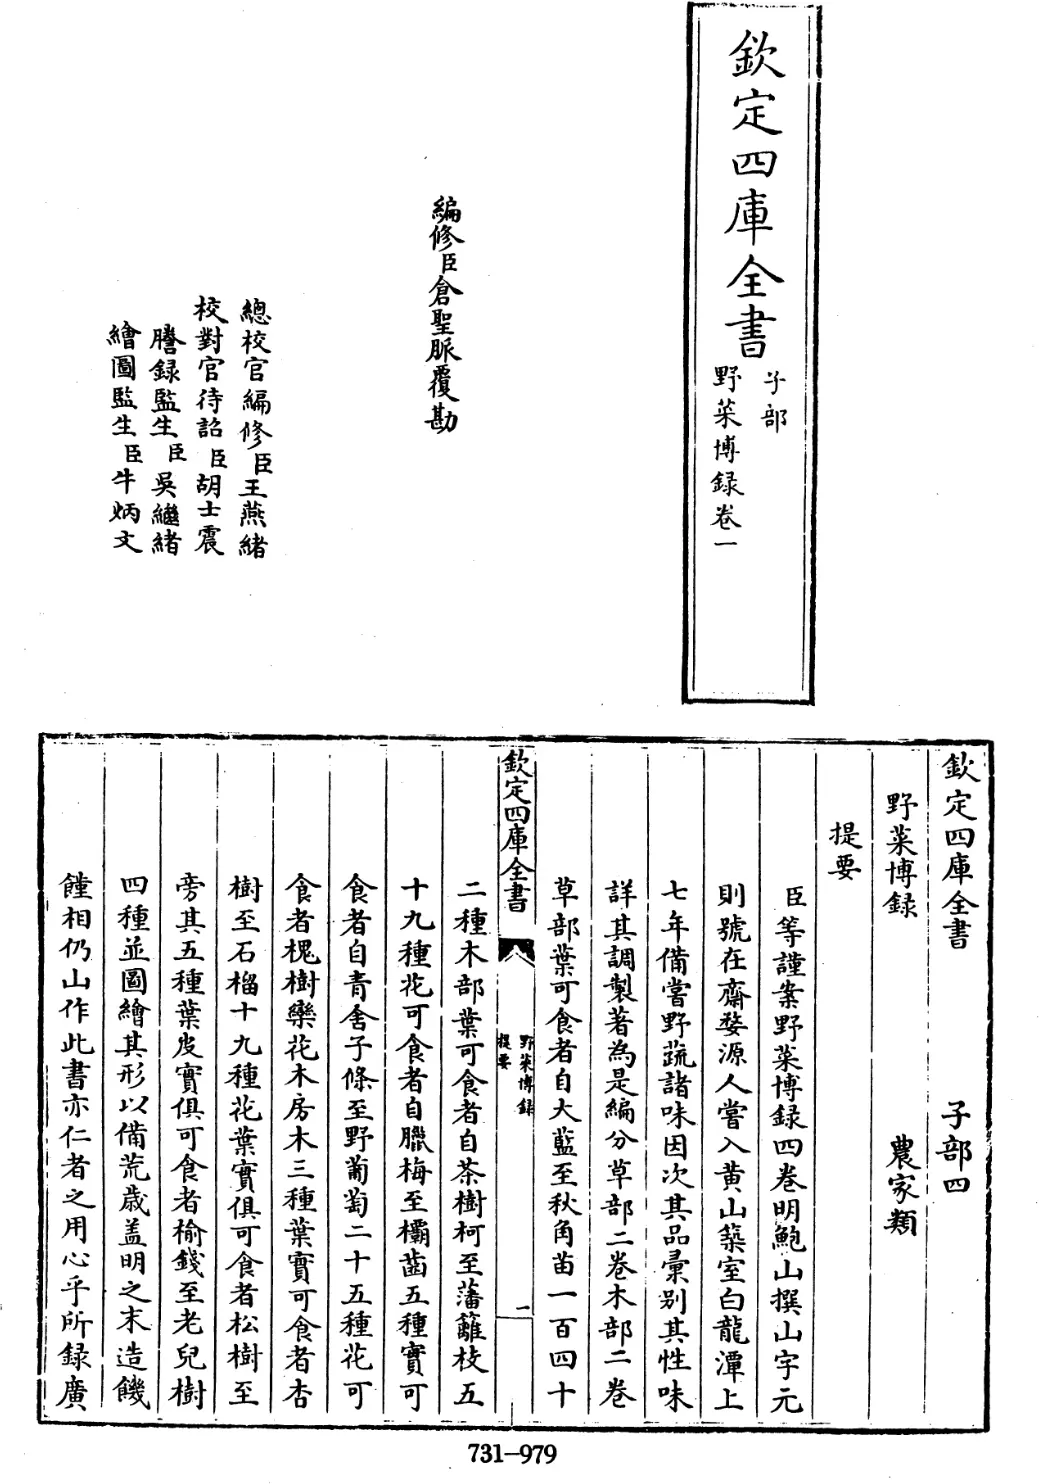 欽定四庫全書
子部
野菜博録卷一
編修臣倉聖脈覆勘
總校官編修臣王燕緒
校對官待詔臣胡士震
謄録監生臣吳繼緒
繪圖監生臣牛炳文
欽定四庫全書 子部四
野菜博録 農家類
提要
臣等謹案野菜博録四卷明鮑山撰山字元
則號在齋婺源人嘗入黄山築室白龍潭上
七年備嘗野蔬諸味因次其品彙别其性味
詳其調製著為是編分草部二卷木部二卷
草部葉可食者自大藍至秋角苗一百四十
欽定四庫全書
野菜博録
提要
一
二種木部葉可食者自茶樹柯至藩籬枝五
十九種花可食者自臘梅至欛齒五種實可
食者自青舍子條至野葡萄二十五種花可
食者槐樹欒花木房木三種葉實可食者杏
樹至石榴十九種花葉實俱可食者松樹至
旁其五種葉皮實俱可食者榆錢至老兒樹
四種並圖繪其形以備荒歳盖明之末造饑
饉相仍山作此書亦仁者之用心乎所録廣
731–979